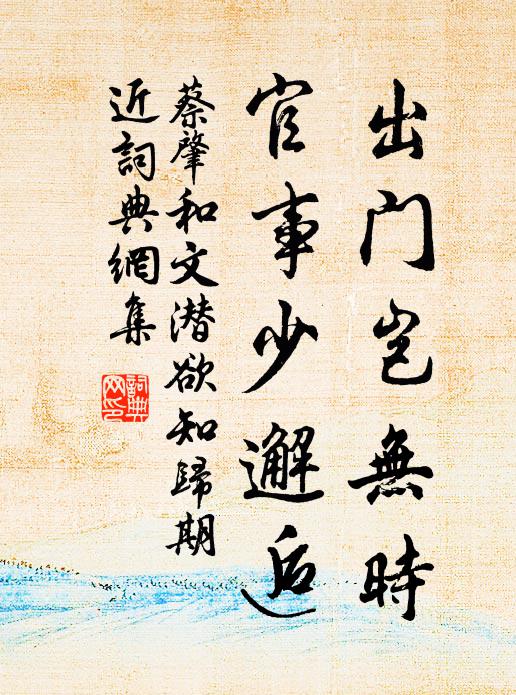 出門岂無時
官事少邂逅
蔡肇和文潜欲知歸期
近詞典網集
詞典
网印